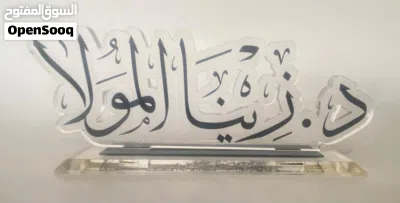 السوق المفتوح
OpenSooq
د. زِينَا المَوْلَا